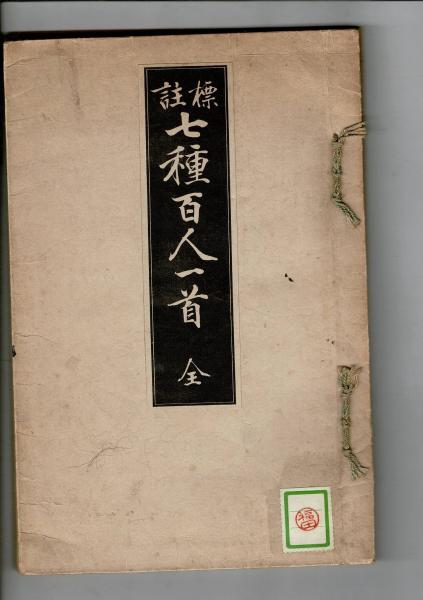 標註
七種百人一首 全
福田